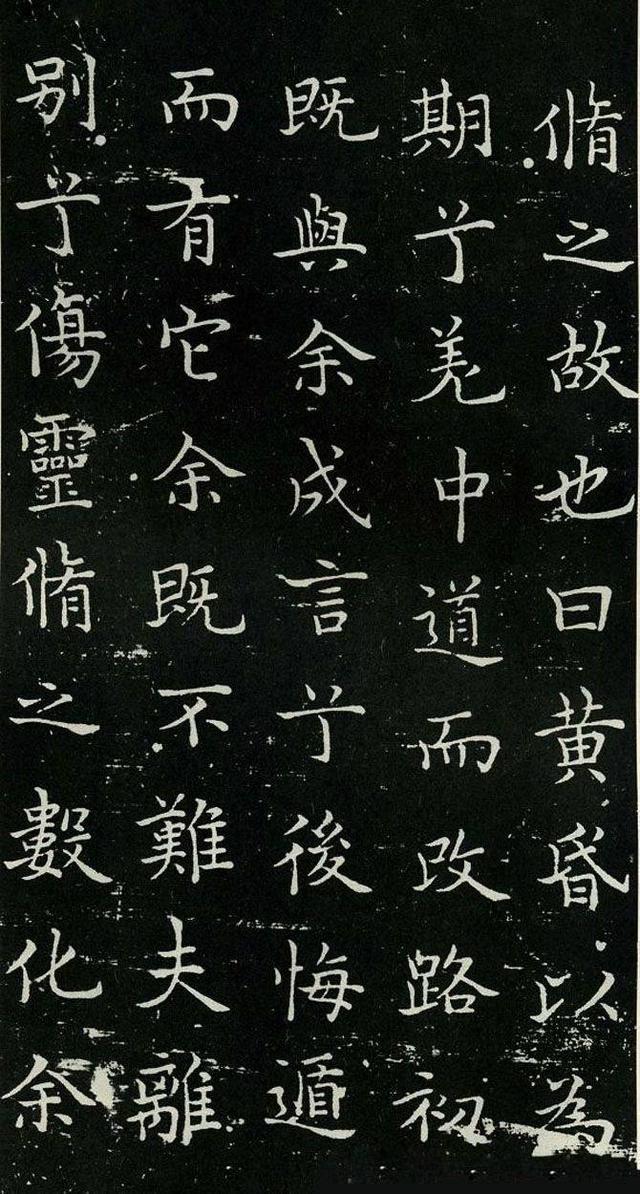 脩之故也曰黄昏以為
期兮羌中道而改路初
既與余成言兮後悔遁
而有它余既不難夫離
別兮傷靈脩之數化余